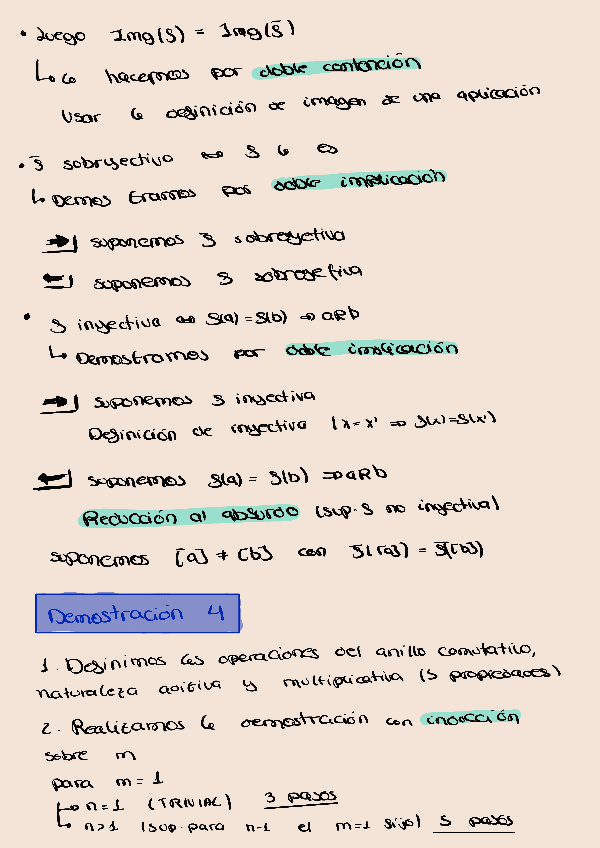 • Luego Img(f) = Img(f̄)
↳ lo hacemos por doble contención
Usar la definición de imagen de una aplicación
• f̄ sobreyectiva ⇔ f lo es
↳ Demostramos por doble implicación
⇒| suponemos f̄ sobreyectiva
⇐| suponemos f sobreyectiva
• f̄ inyectiva ⇔ f(a) = f(b) ⇒ aRb
↳ Demostramos por doble implicación
⇒| suponemos f̄ inyectiva
Definición de inyectiva (x = x' ⇒ f(x) = f(x')
⇐| suponemos f(a) = f(b) ⇒ aRb
Reducción al absurdo (sup. f̄ no inyectiva)
suponemos [a] ≠ [b] con f̄([a]) = f̄([b])
Demostración 4
1. Definimos las operaciones del anillo conmutativo,
naturaleza aditiva y multiplicativa (5 propiedades)
2. Realizamos la demostración con inducción
sobre m
para m = 1
↳ n = 1 (TRIVIAL) 3 pasos
↳ n > 1 (sup. para n-1 el m = 1 fijo) 5 pasos